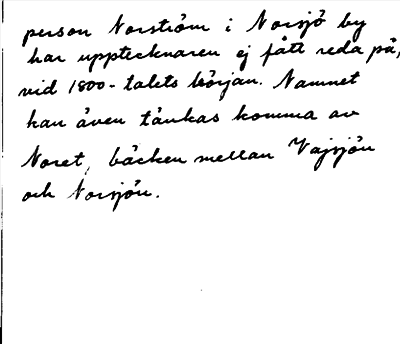 person Norström i Norsjö by
har upptecknaren ej fått reda på,
vid 1800-talets början. Namnet
kan även tänkas komma av
Noret, bäcken mellan Vajsjön
och Norsjön.